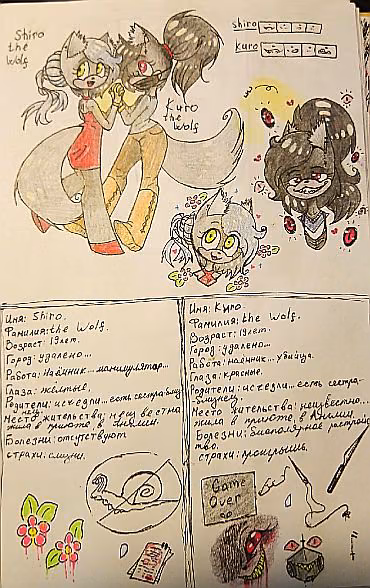 Shiro
the
Wolf
shiro
kuro
Kuro
the
Wolf
Имя: Shiro.
Фамилия: the Wolf.
Возраст: 19лет.
Город: удалено...
Работа: наёмник...манипулятор...
Глаза: желтые.
Родители: исчезли...есть сестра-близнец.
Место жительства: неизвестна
жила в приюте в Англии.
Болезни: отсутствуют
страхи: слизни.
Имя: Kyro.
Фамилия: the Wolf.
Возраст: 19лет.
Город: удалено...
Работа: наёмник...убийца.
Глаза: красные.
Родители: исчезли...есть сестра-
близнец.
Место жительства: неизвестно...
жила в приюте в Англии.
Болезни: биполярное расстройс
тво.
страхи: проигрышь.
Game
Over